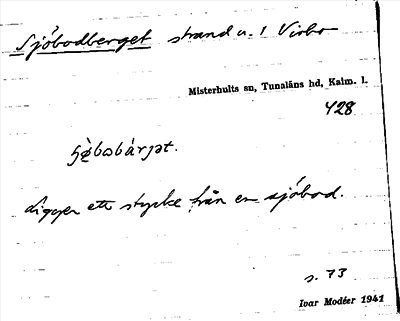 Sjöbodberget strand u. 1 Virbo
Misterhults sn, Tunaläns hd, Kalm. l.
428
ligger ett stycke från en sjöbod.
s. 73
Ivar Modéer 1941